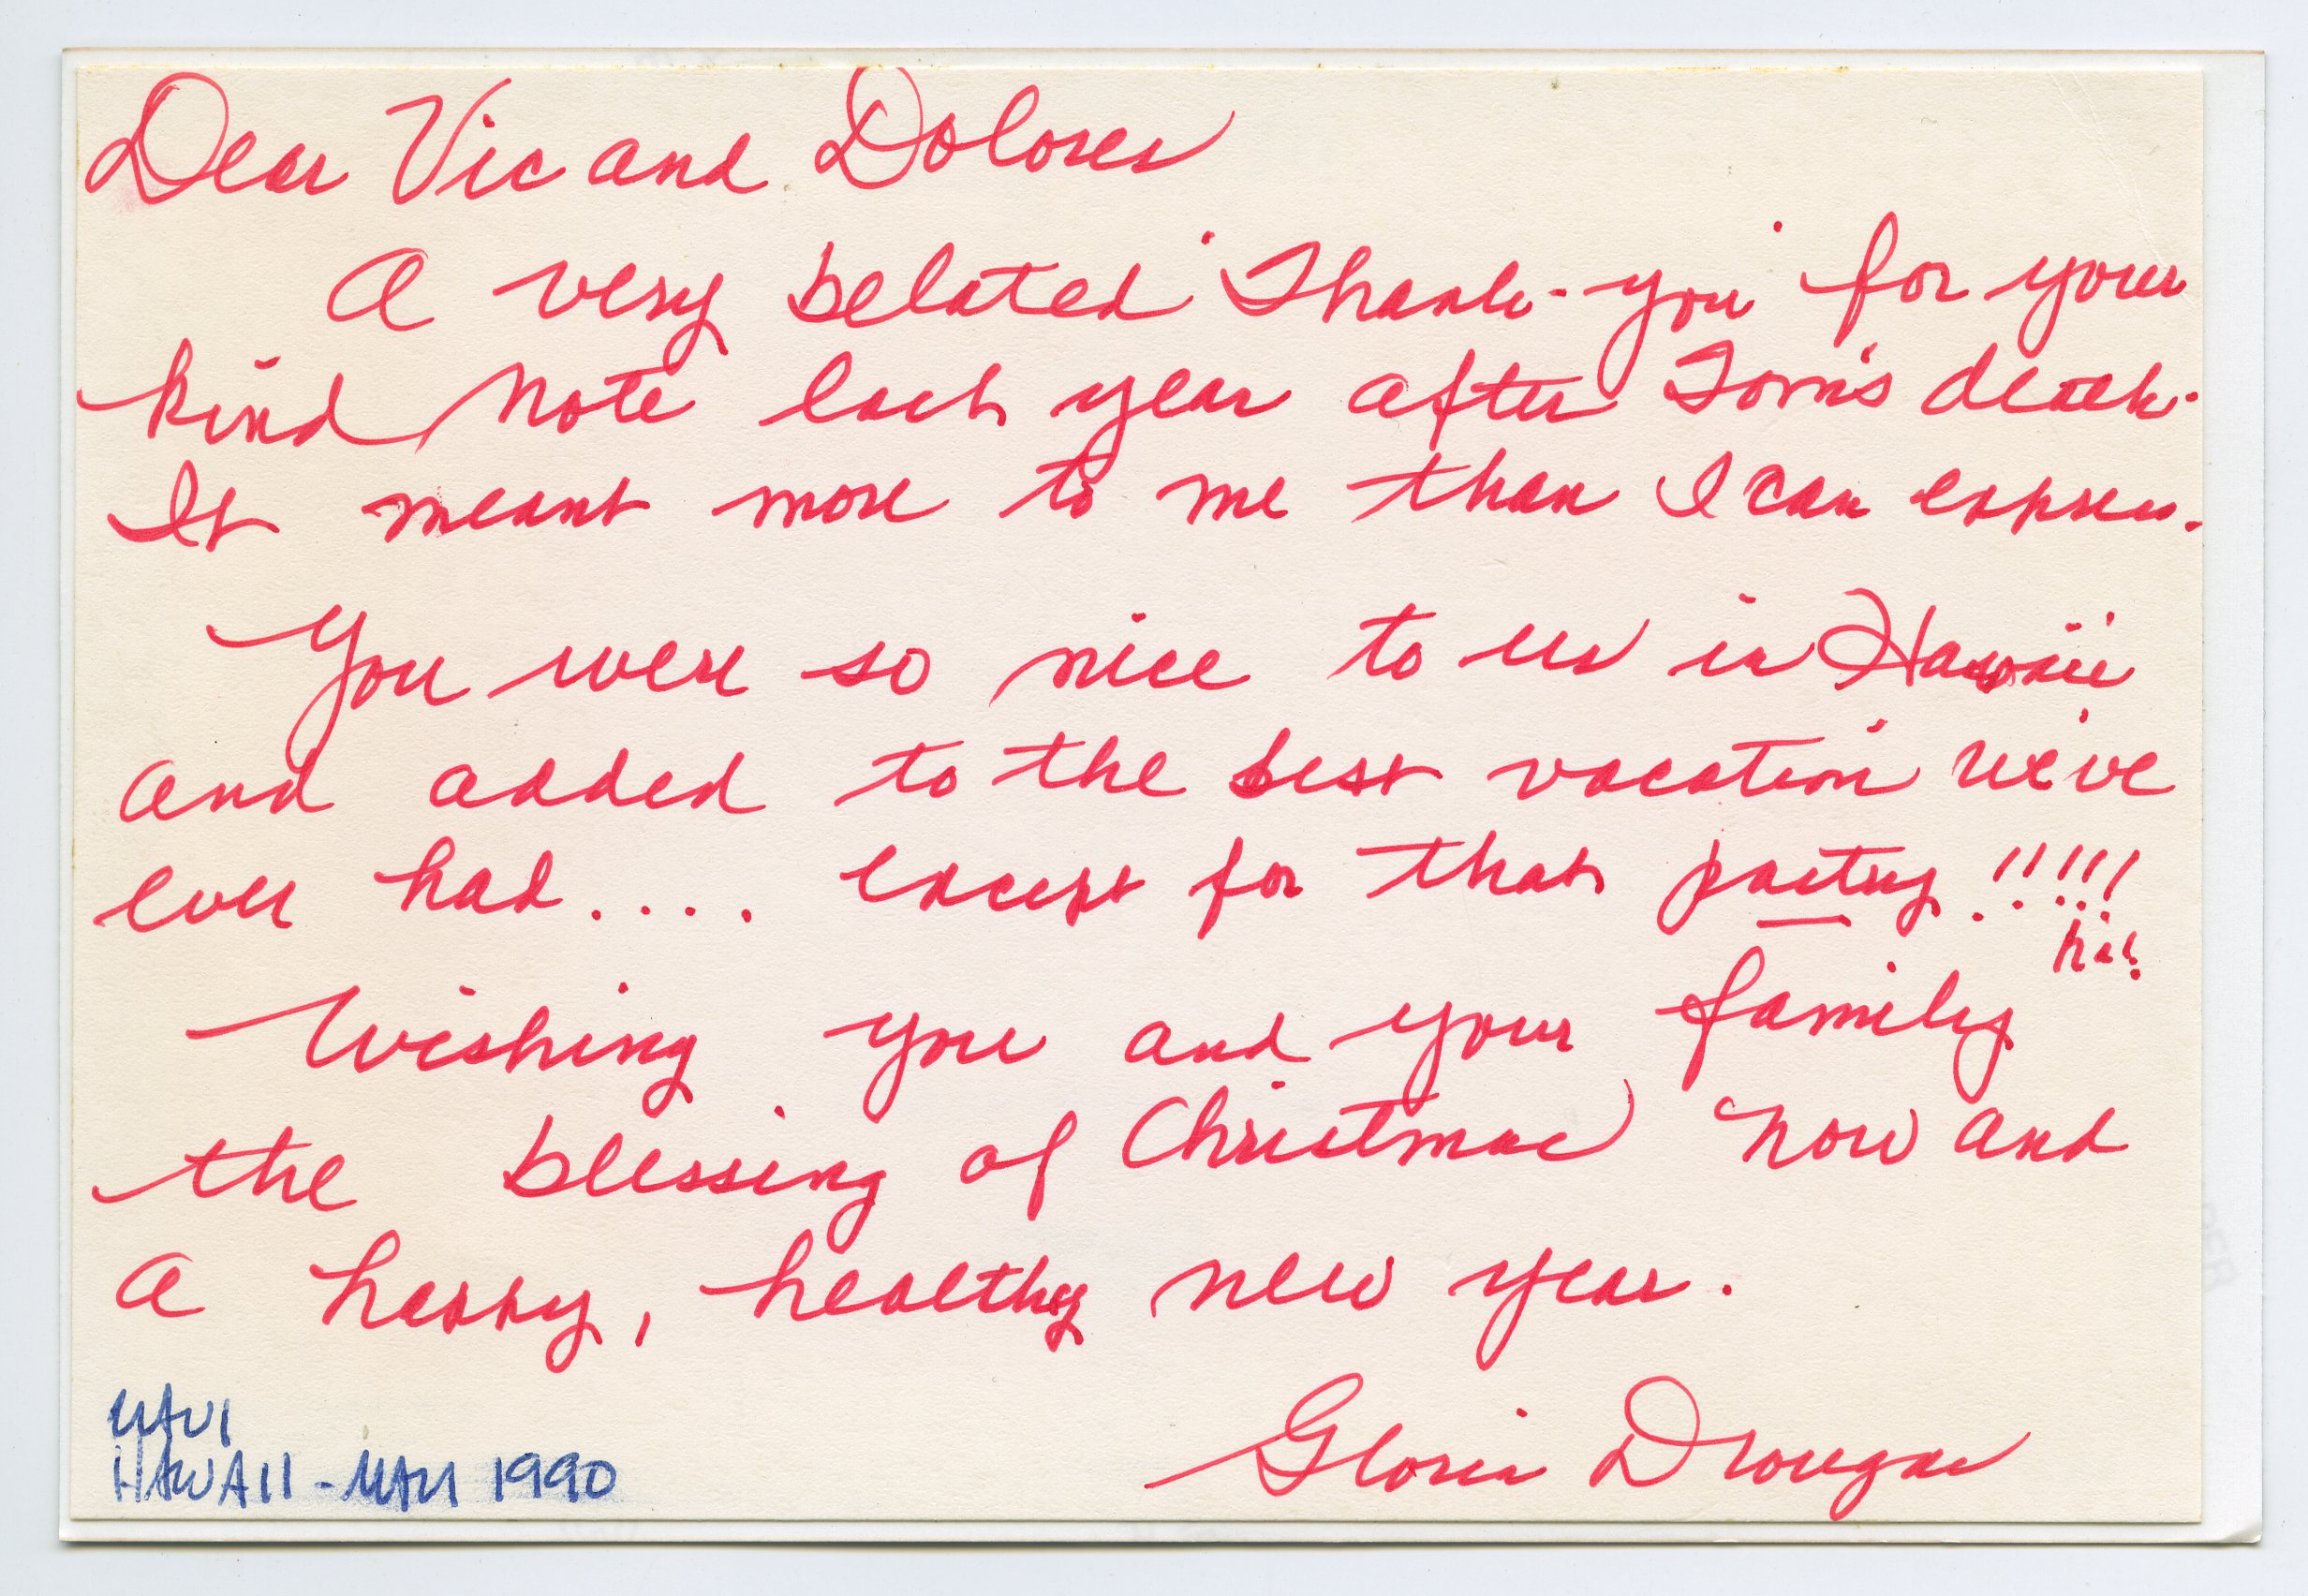 Dear Vic and Dolores
A very belated "Thank-you" for your
kind note each year after Tom's death.
It meant more to me than I can express.
You were so nice to us in Hawaii
and added to the best vacation we've
ever had.... except for that pastry!!!!!
ha!!
Wishing you and your family
the blessing of Christmas now and
a happy, healthy new year.
Gloria Drougas
MAUI
HAWAII - MAY 1990